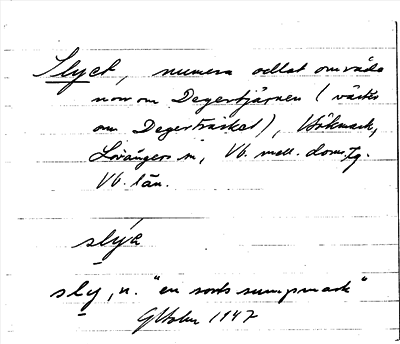 Slyet, numera odlat område
norr om Degertjärnen (väster
om Degerträsket), Hökmark,
Lövångers sn, Vb. mell. doms.g.
Vb. län.
slýe
sly, n. "en sorts sumpmark"
GHolm 1947